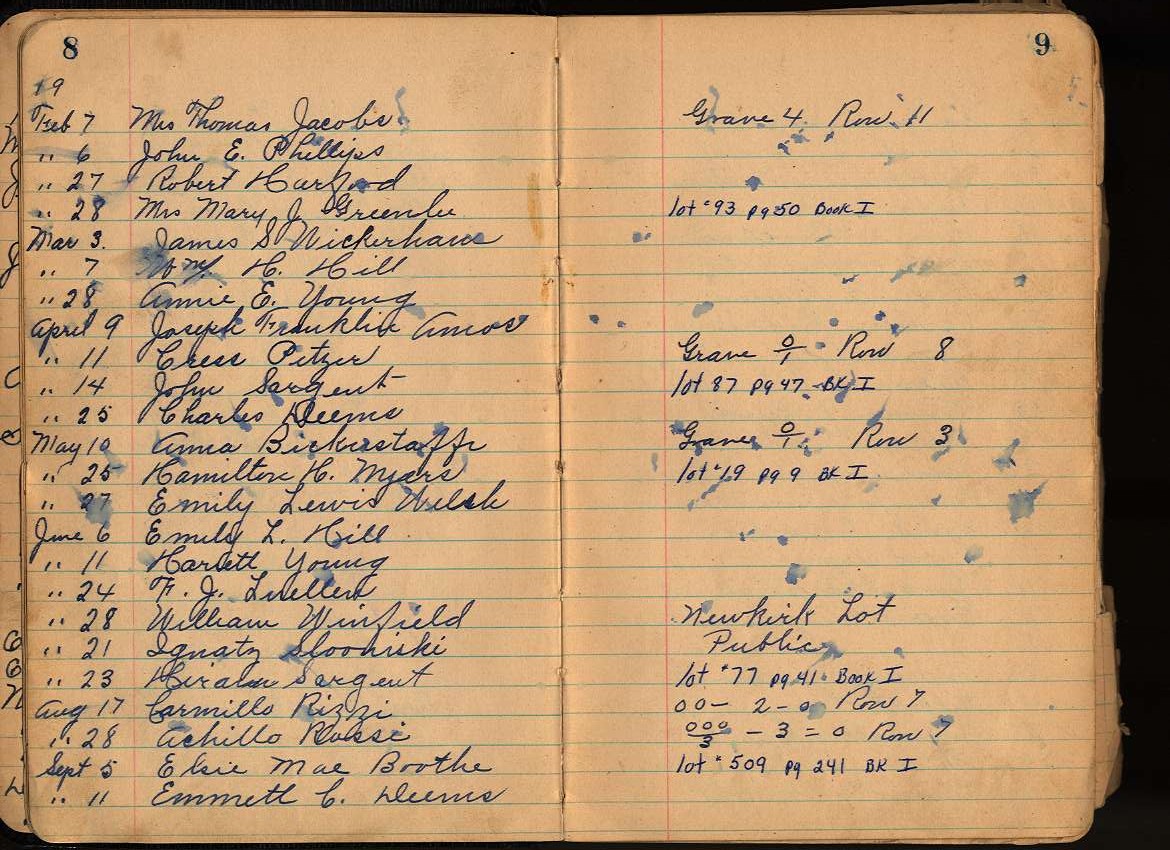 8
9
19
Feb 7 Mrs Thomas Jacobs Grave 4. Row 11
" 6 John E. Phillips
" 27 Robert Harford
" 28 Mrs Mary J. Greenlee lot #93 pg 50 Book I
Mar 3. James S Wickerham
" 7 Wm. H. Hill
" 28 Annie E. Young
April 9 Joseph Franklin Amos
" 11 Cress Pitzer Grave 0/1 Row 8
" 14 John Sargent lot 87 pg 47 - BK I
" 25 Charles Deems
May 10 Anna Bickerstaff Grave 0/1 Row 3
" 25 Hamilton H. Myers lot #19 pg 9 BK I
" 27 Emily Lewis Welsh
June 6 Emily L. Hill
" 11 Hariett Young
" 24 F. J. Luellen
" 28 William Winfield Newkirk Lot
" 21 Ignatz Public
" 23 Hiram Sargent lot #77 pg 41 - Book I
Aug 17 Carmillo Rizzi 00 - 2 - 0 Row 7
" 28 Achillo Rossi 000/3 - 3 = 0 Row 7
Sept 5 Elsie Mae Boothe lot # 509 pg 241 BK I
" 11 Emmett C. Deems